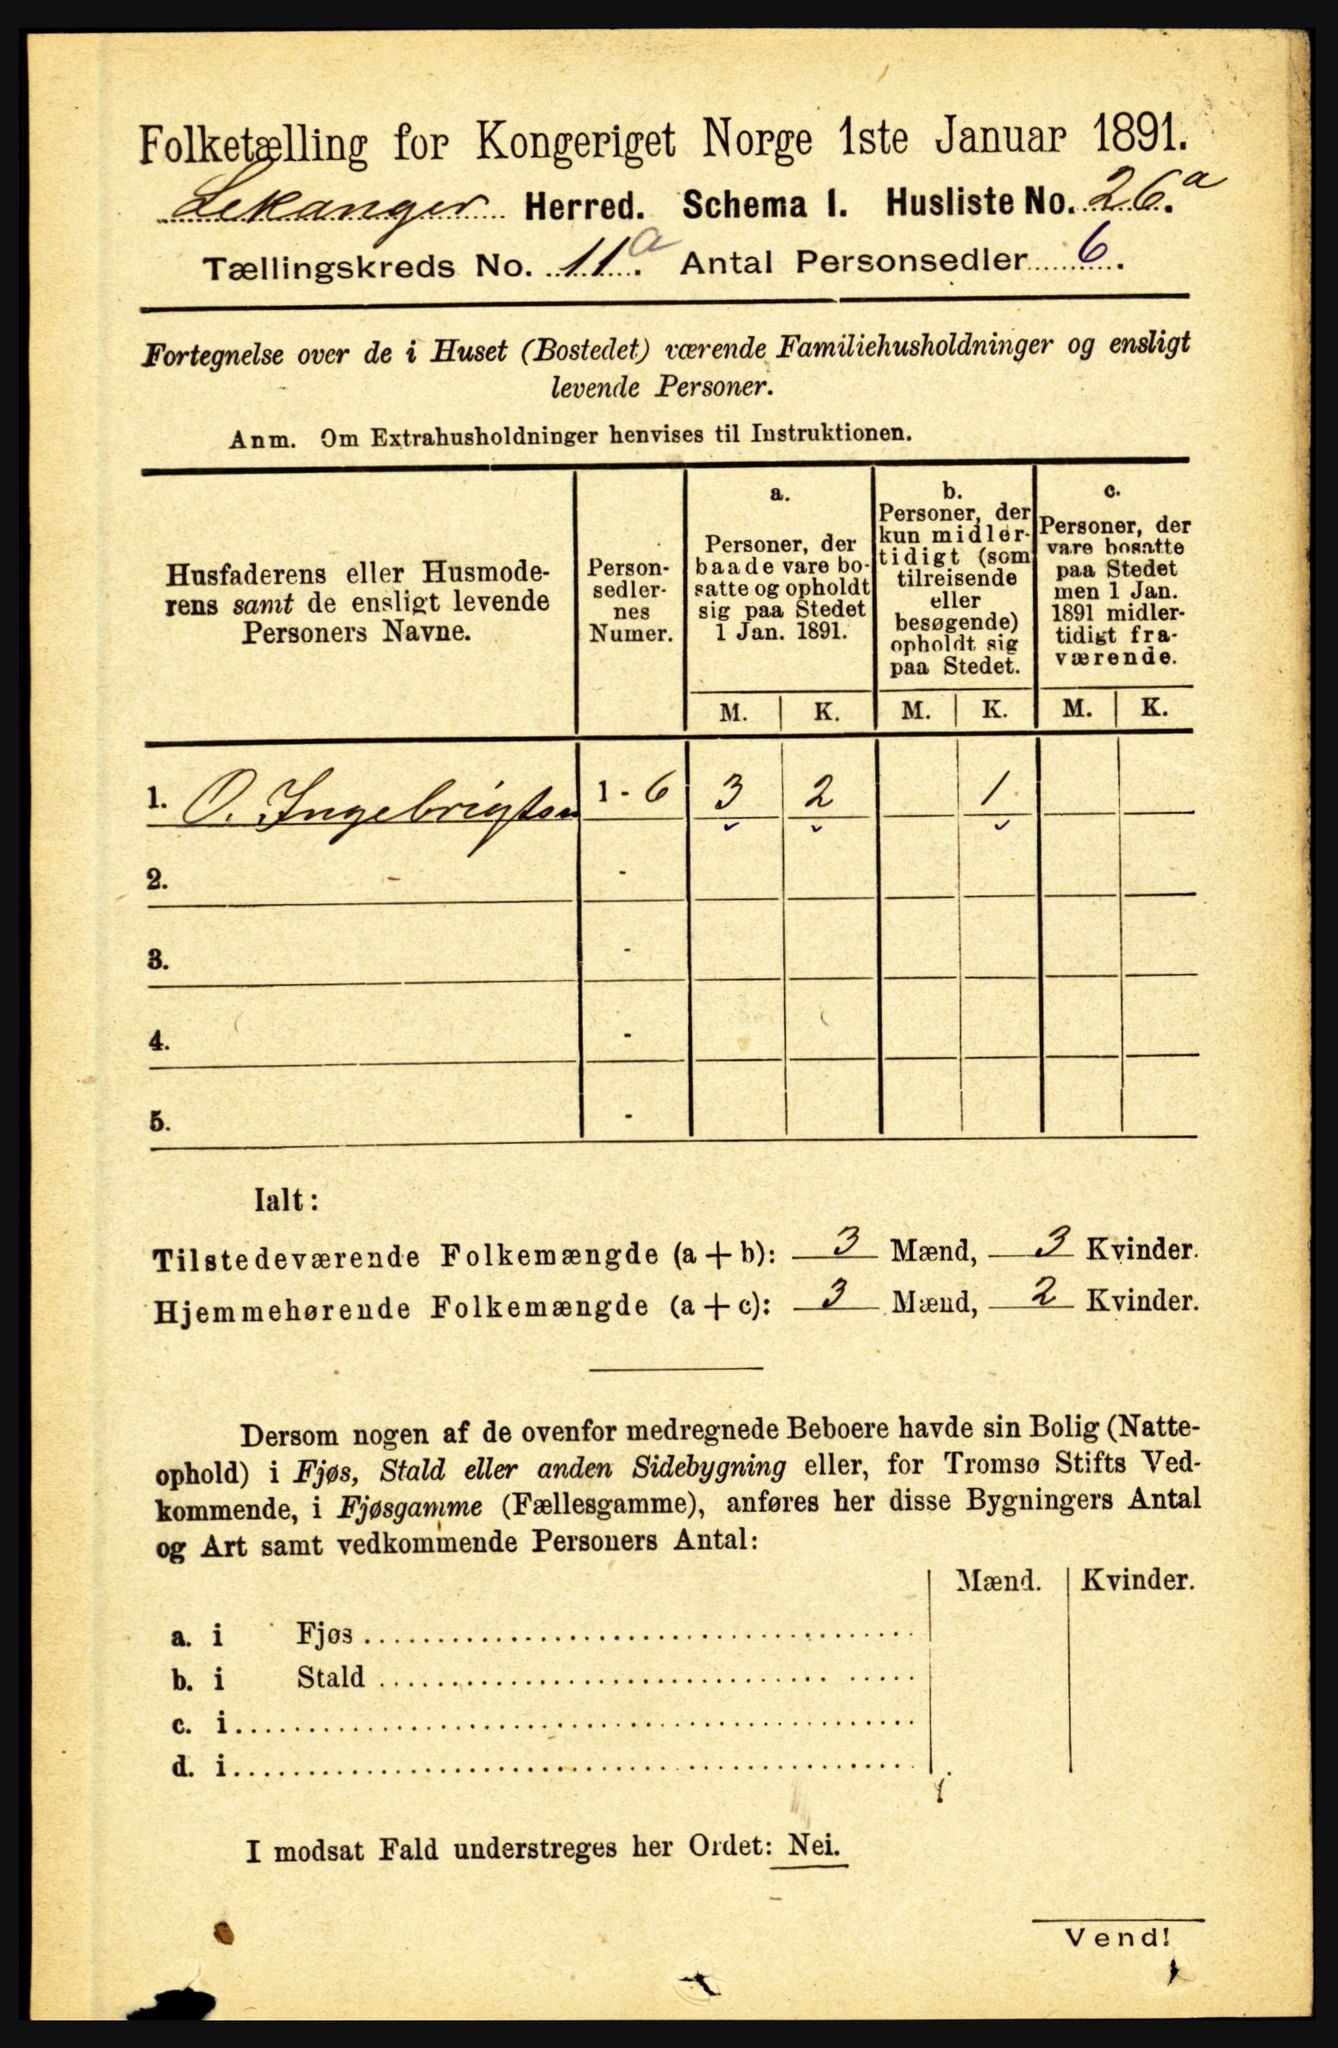 Folketælling for Kongeriget Norge 1ste Januar 1891.
Lekanger Herred. Schema I. Husliste No. 26.a
Tællingskreds No. 11a. Antal Personsedler 6.
Fortegnelse over de i Huset (Bostedet) værende Familiehusholdninger og ensligt
levende Personer.
Anm. Om Extrahusholdninger henvises til Instruktionen.
Husfaderens eller Husmode-
rens samt de ensligt levende
Personers Navne.
Person-
sedler-
nes
Numer.
a.
Personer, der
baade vare bo-
satte og opholdt
sig paa Stedet
1 Jan. 1891.
b.
Personer, der
kun midler-
tidigt (som
tilreisende
eller
besøgende)
opholdt sig
paa Stedet.
c.
Personer, der
vare bosatte
paa Stedet
men 1 Jan.
1891 midler-
tidigt fra-
værende.
M. K. M. K. M. K.
1. O. Ingebrigtsen 1 - 6 3 2 1
2. -
3. -
4. -
5. -
Ialt:
Tilstedeværende Folkemængde (a + b): 3 Mænd, 3 Kvinder.
Hjemmehørende Folkemængde (a + c): 3 Mænd, 2 Kvinder.
Dersom nogen af de ovenfor medregnede Beboere havde sin Bolig (Natte-
ophold) i Fjøs, Stald eller anden Sidebygning eller, for Tromsø Stifts Ved-
kommende, i Fjøsgamme (Fællesgamme), anføres her disse Bygningers Antal
og Art samt vedkommende Personers Antal:
Mænd. Kvinder.
a. i Fjøs
b. i Stald
c. i
d. i
I modsat Fald understreges her Ordet: Nei.
Vend!